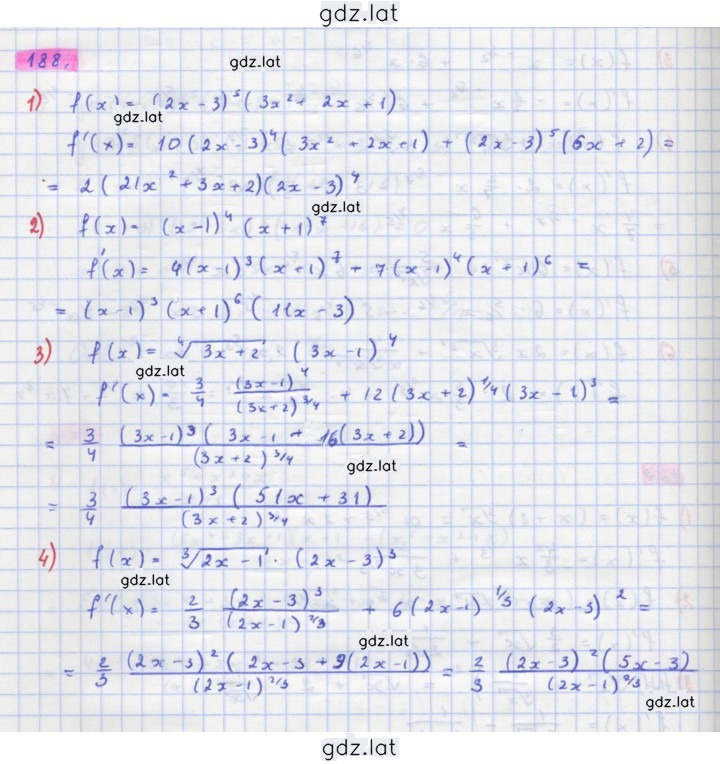 gdz.lat
188.
gdz.lat
1) f(x) = (2x - 3)⁵(3x² + 2x + 1)
gdz.lat
f'(x) = 10(2x - 3)⁴(3x² + 2x + 1) + (2x - 3)⁵(6x + 2) =
= 2(21x² + 3x + 2)(2x - 3)⁴
gdz.lat
2) f(x) = (x - 1)⁴ (x + 1)⁷
f'(x) = 4(x - 1)³(x + 1)⁷ + 7(x - 1)⁴(x + 1)⁶ =
= (x - 1)³ (x + 1)⁶ (11x - 3)
3) f(x) = ∜(3x + 2) (3x - 1)⁴
gdz.lat
f'(x) = 3/4 (3x - 1)⁴/(3x + 2)^(3/4) + 12(3x + 2)^(1/4)(3x - 1)³ =
= 3/4 (3x - 1)³(3x - 1 + 16(3x + 2))/(3x + 2)^(3/4) =
gdz.lat
= 3/4 (3x - 1)³ (51x + 31)/(3x + 2)^(3/4)
4) f(x) = ∛(2x - 1) · (2x - 3)³
gdz.lat
f'(x) = 2/3 (2x - 3)³/(2x - 1)^(2/3) + 6(2x - 1)^(1/3) (2x - 3)² =
gdz.lat
= 2/3 (2x - 3)²(2x - 3 + 9(2x - 1))/(2x - 1)^(2/3) = 2/3 (2x - 3)²(5x - 3)/(2x - 1)^(2/3)
gdz.lat
gdz.lat